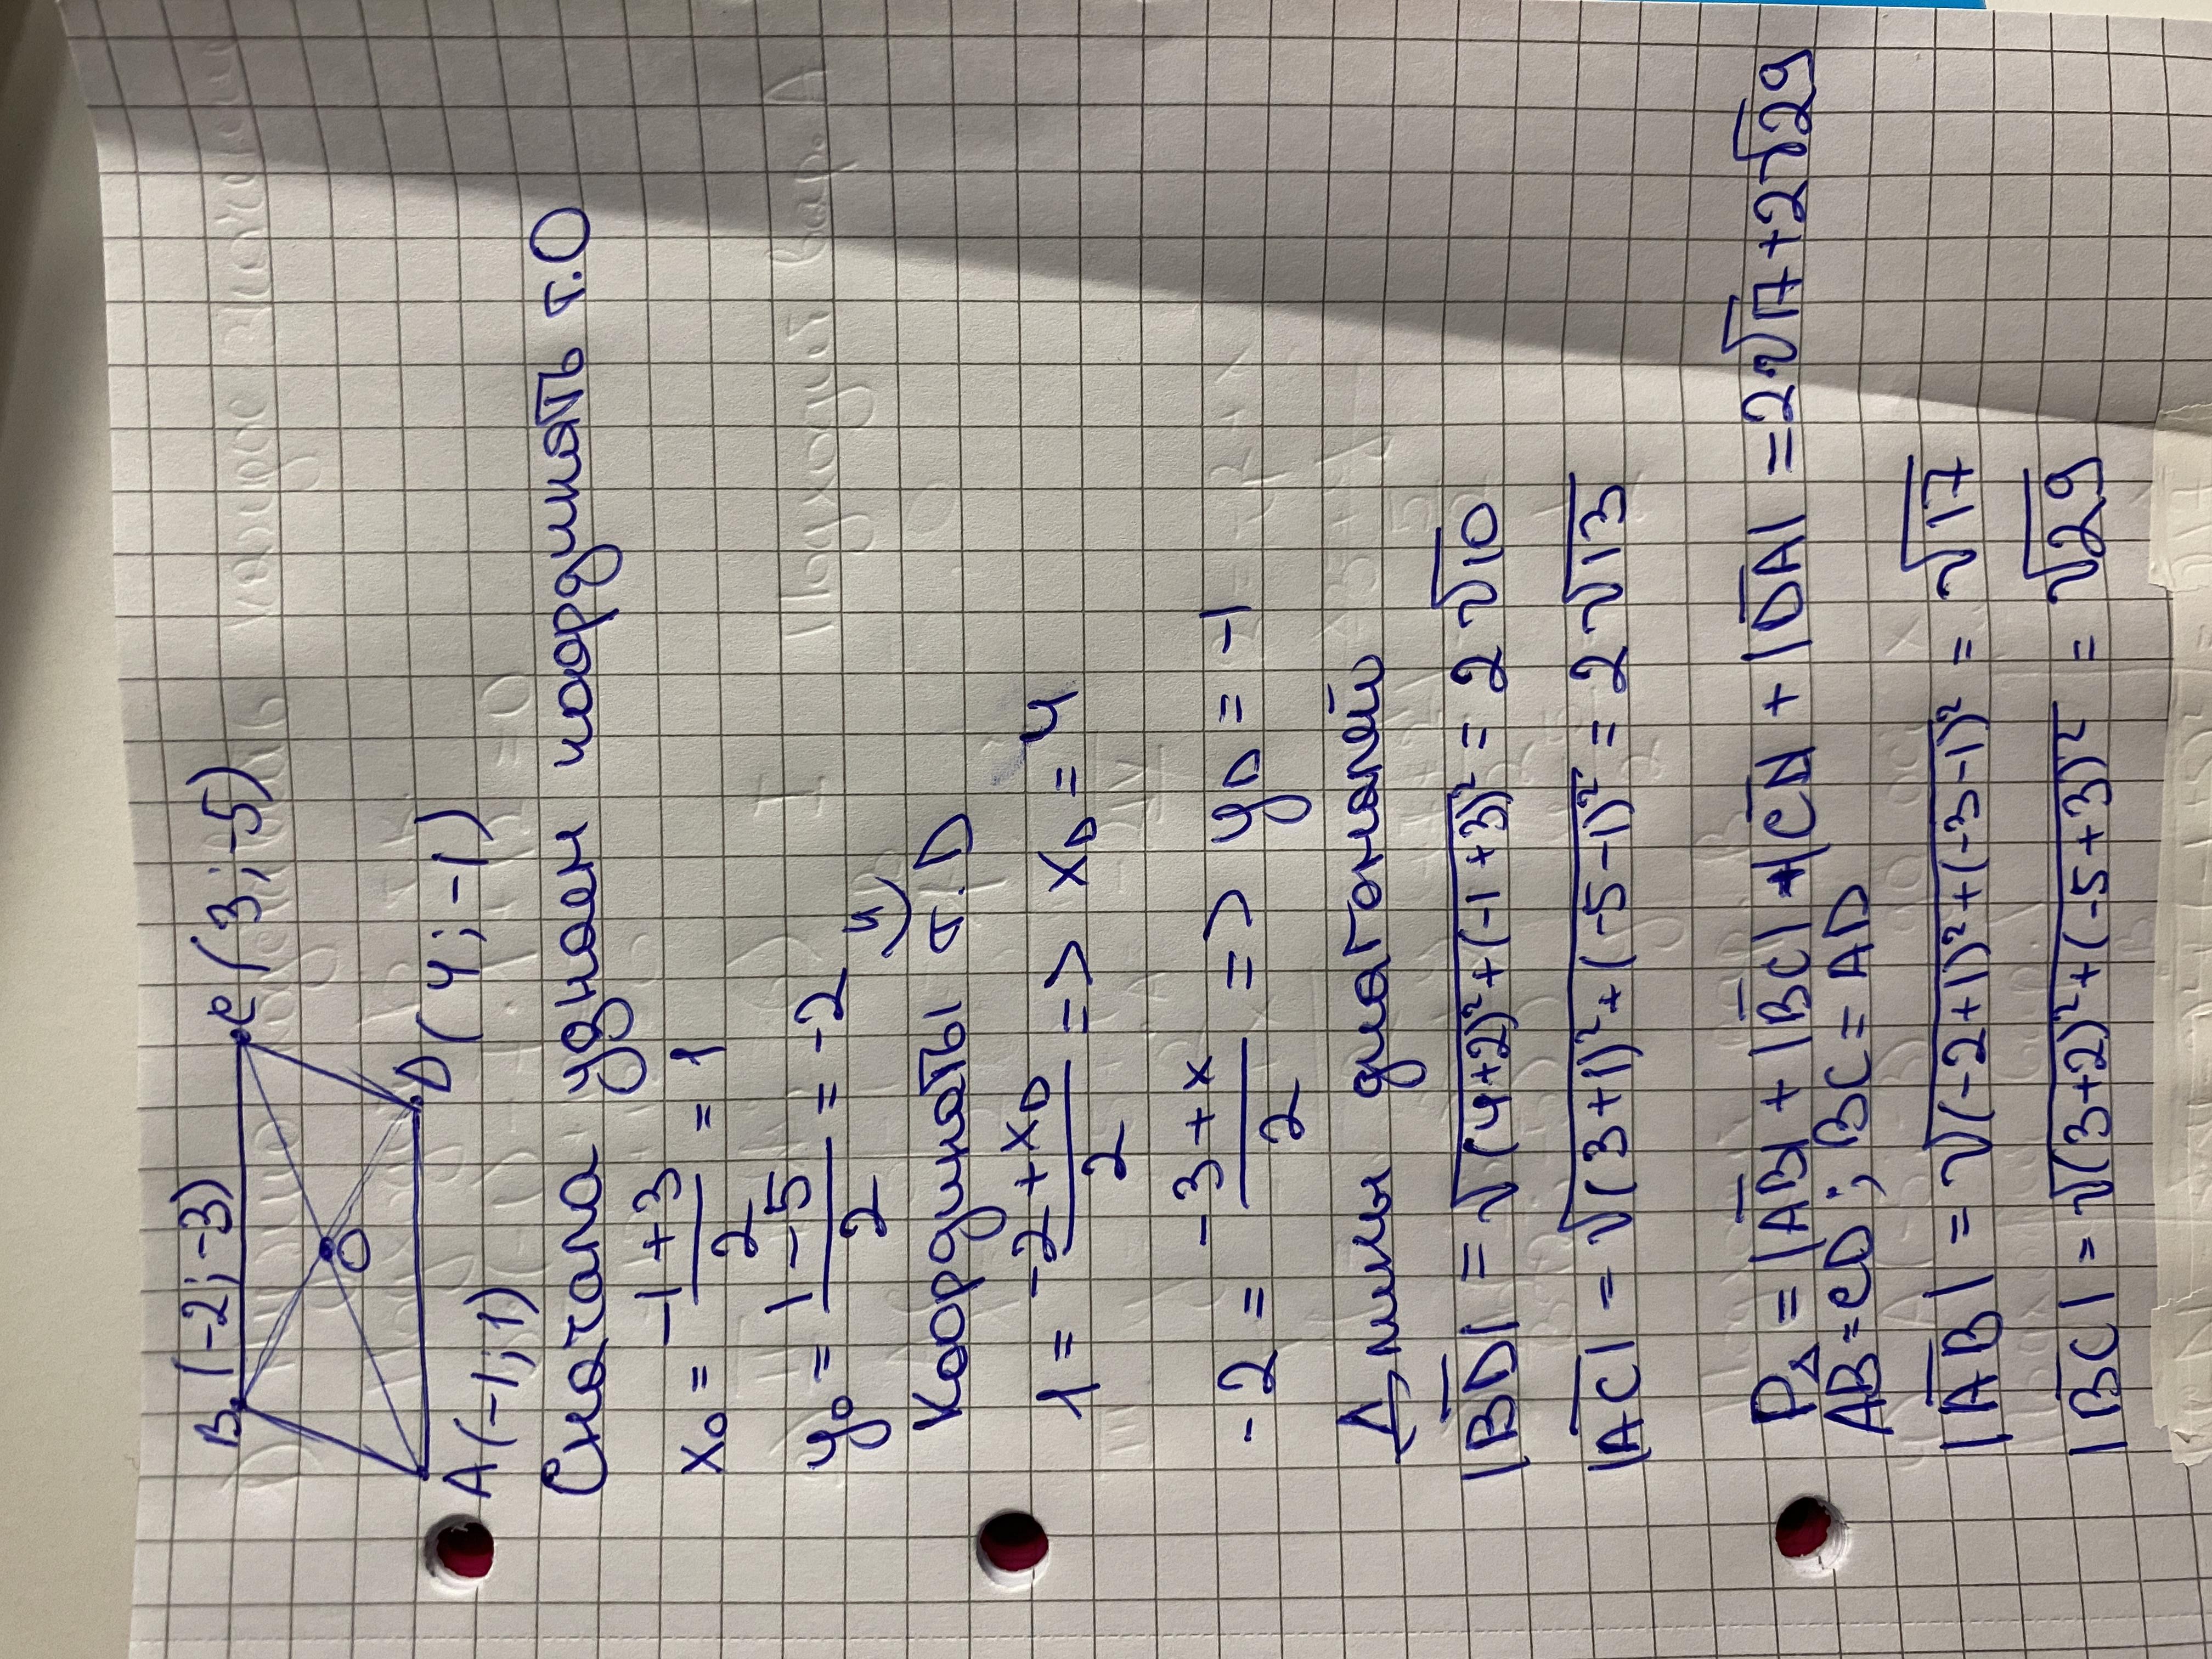 B (-2; -3)
C (3; -5)
O
D (4; -1)
A (-1; 1)
Сначала узнаем коордкнать т.О
x₀ = (-1+3)/2 = 1
y₀ = (1-5)/2 = -2
Координаты т.D
1 = (-2+x_D)/2 => x_D = 4
-2 = (-3+x)/2 => y_D = -1
Длины диагоналей
|BD| = √((4+2)²+(-1+3)²) = 2√10
|AC| = √((3+1)²+(-5-1)²) = 2√13
P_Δ = |AB| + |BC| + |CD| + |DA| = 2√17+2√29
AB=CD; BC=AD
|AB| = √((-2+1)²+(-3-1)²) = √17
|BC| = √((3+2)²+(-5+3)²) = √29